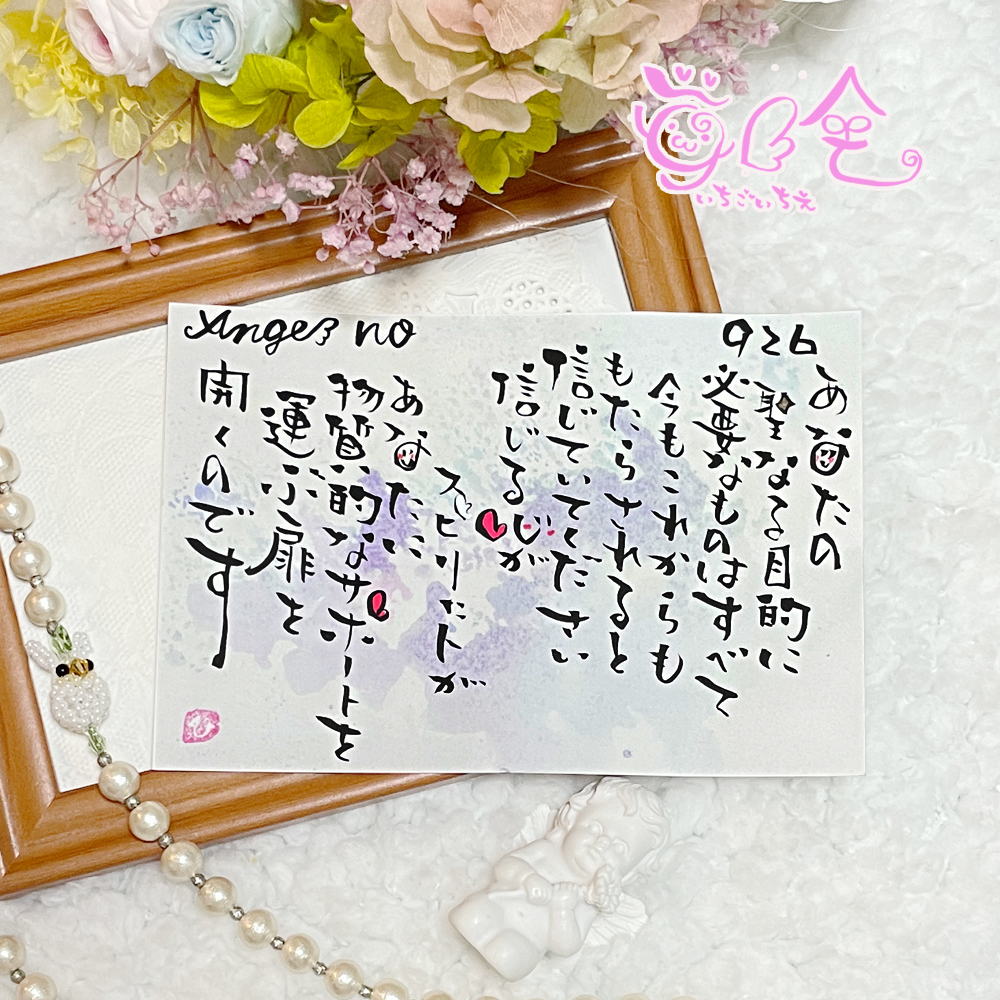 いちごいちえ
Angel no 926
あなたの
聖なる目的に
必要なものはすべて
今もこれからも
もたらされると
信じていてください
信じる心が
スピリットが
あなたに
物質的なサポートを
運ぶ扉を
開くのです